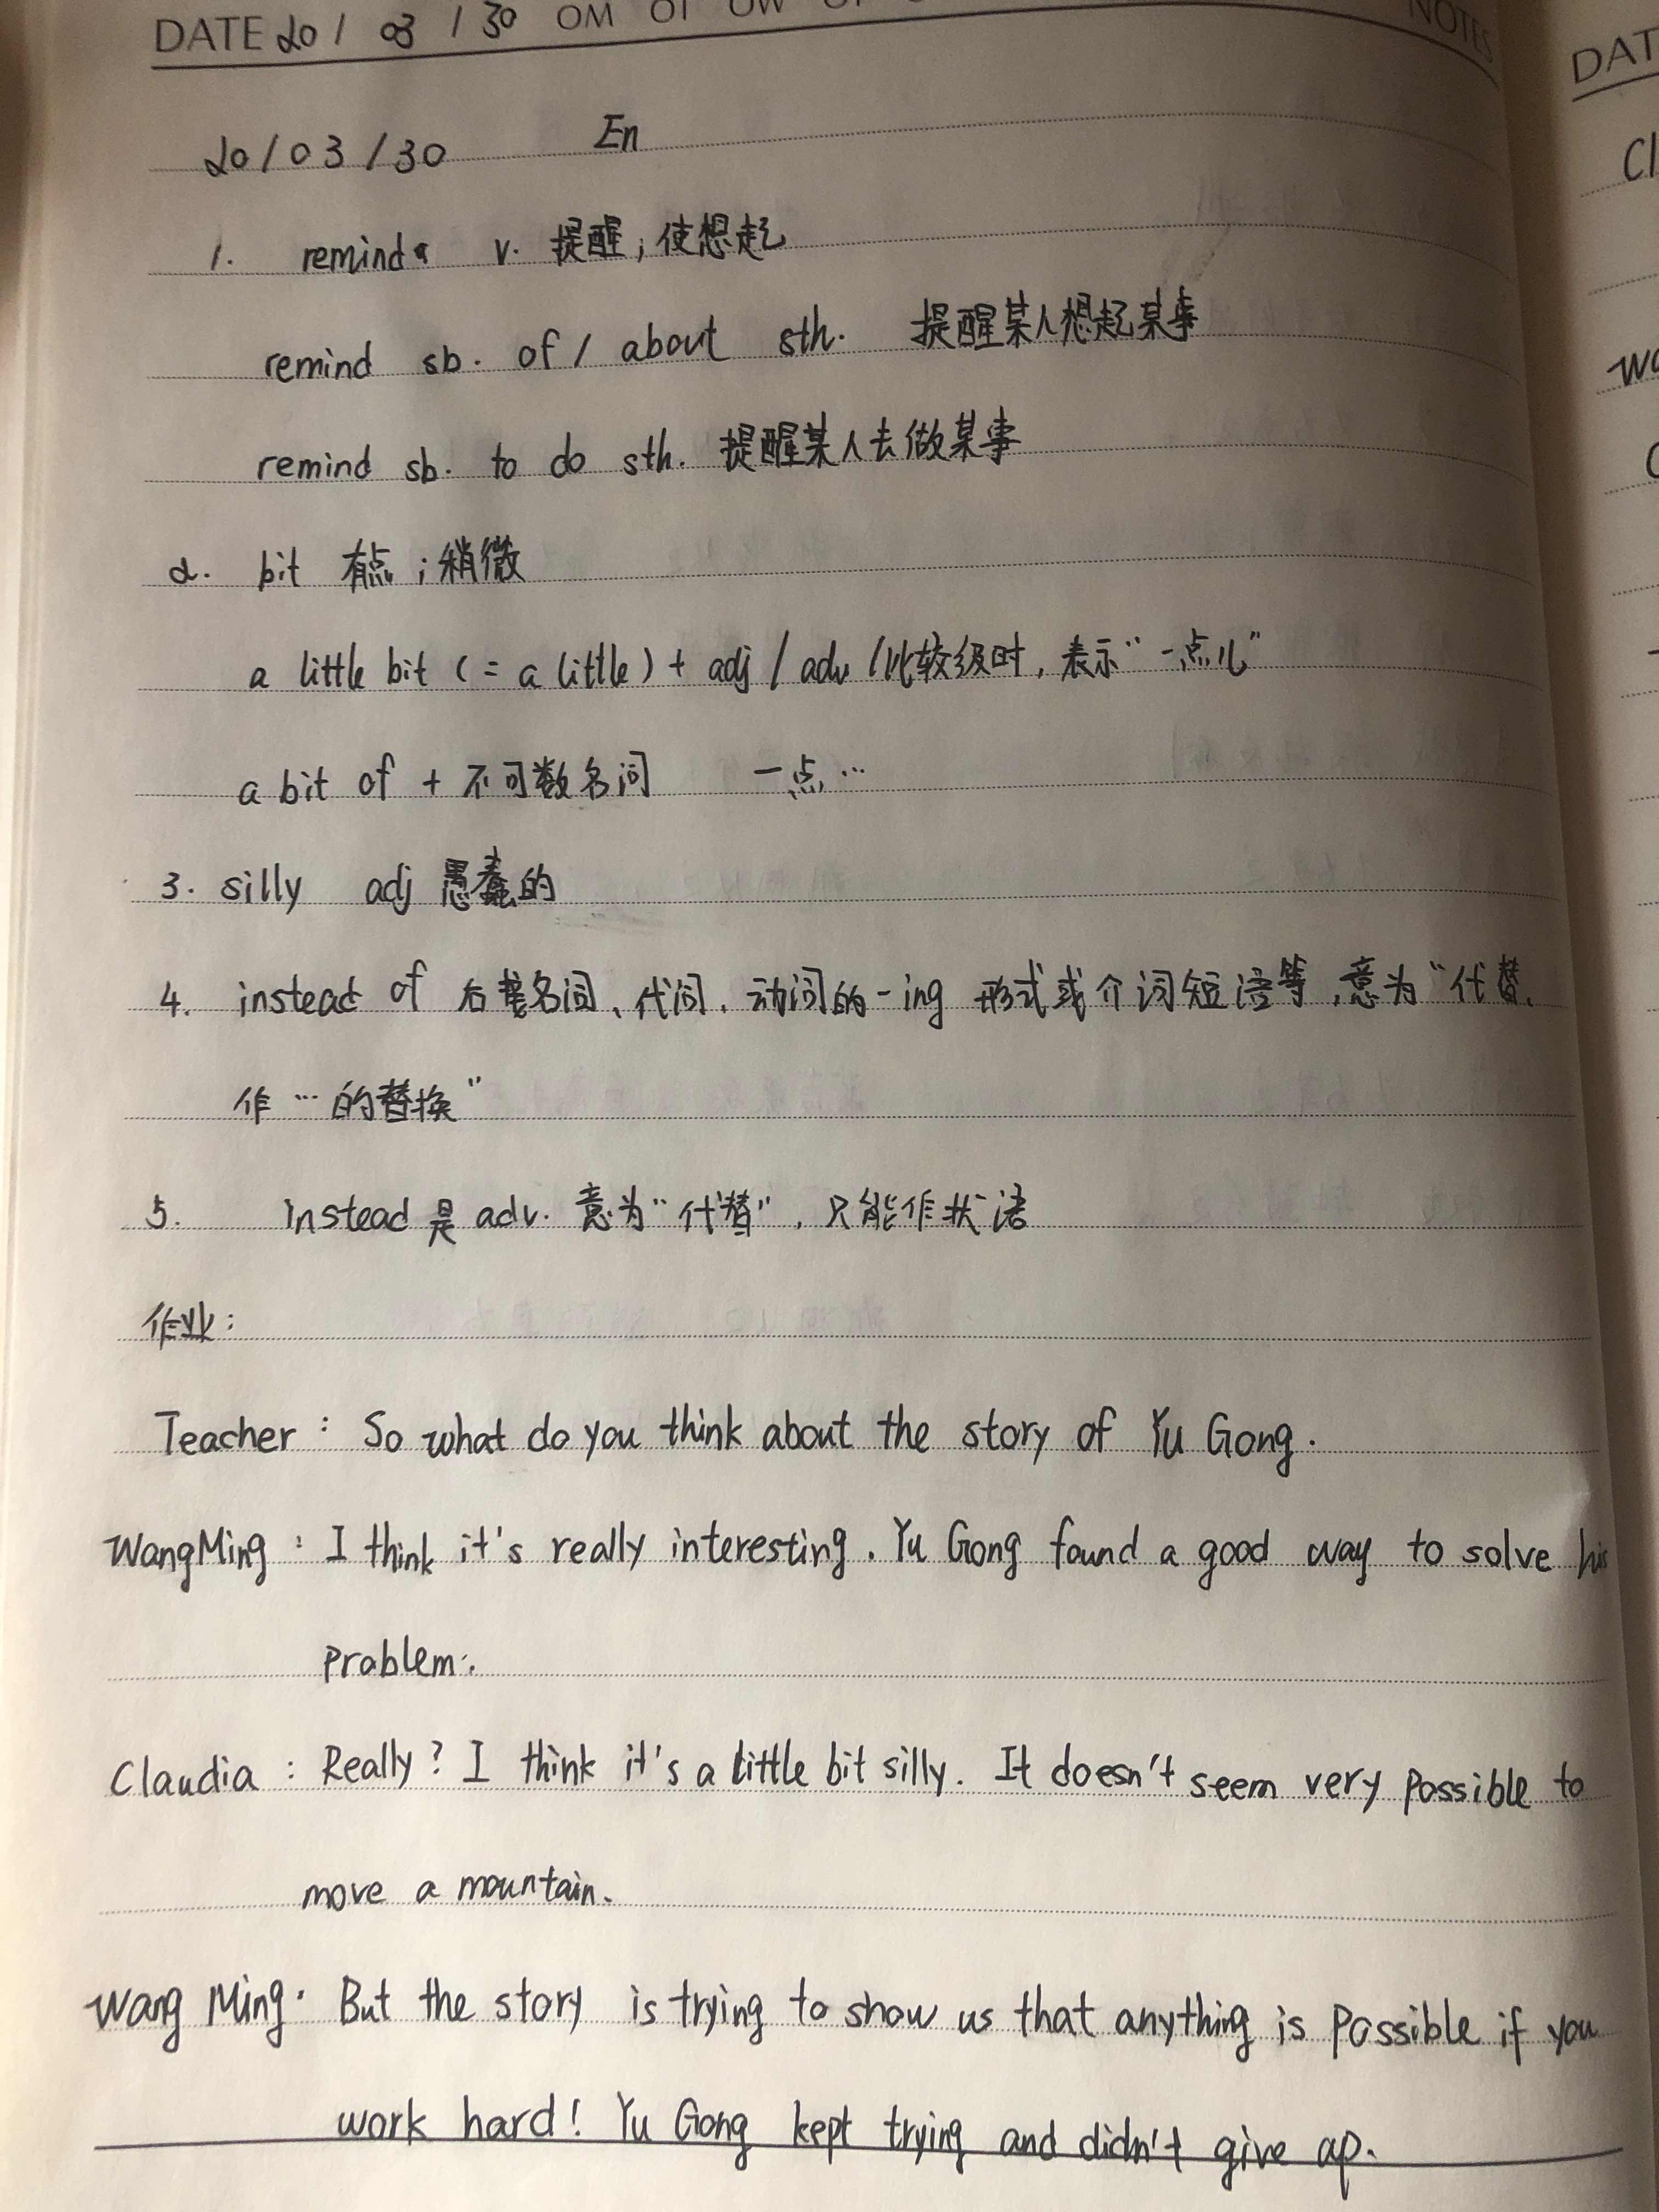 DATE 20 / 03 / 30 OM OT OW
NOTES
20/03/30 En
1. remind v. 提醒；使想起
remind sb. of / about sth. 提醒某人想起某事
remind sb. to do sth. 提醒某人去做某事
2. bit 有点；稍微
a little bit (= a little) + adj / adv /比较级时，表示“一点儿”
a bit of + 不可数名词 一点…
3. silly adj 愚蠢的
4. instead of 后接名词、代词、动词的-ing 形式或介词短语等，意为“代替、
作…的替换”
5. instead 是 adv. 意为“代替”，只能作状语
作业：
Teacher : So what do you think about the story of Yu Gong.
WangMing : I think it's really interesting. Yu Gong found a good way to solve his
problem.
Claudia : Really? I think it's a little bit silly. It doesn't seem very possible to
move a mountain.
Wang Ming: But the story is trying to show us that anything is possible if you
work hard! Yu Gong kept trying and didn't give up.
DAT
Cl